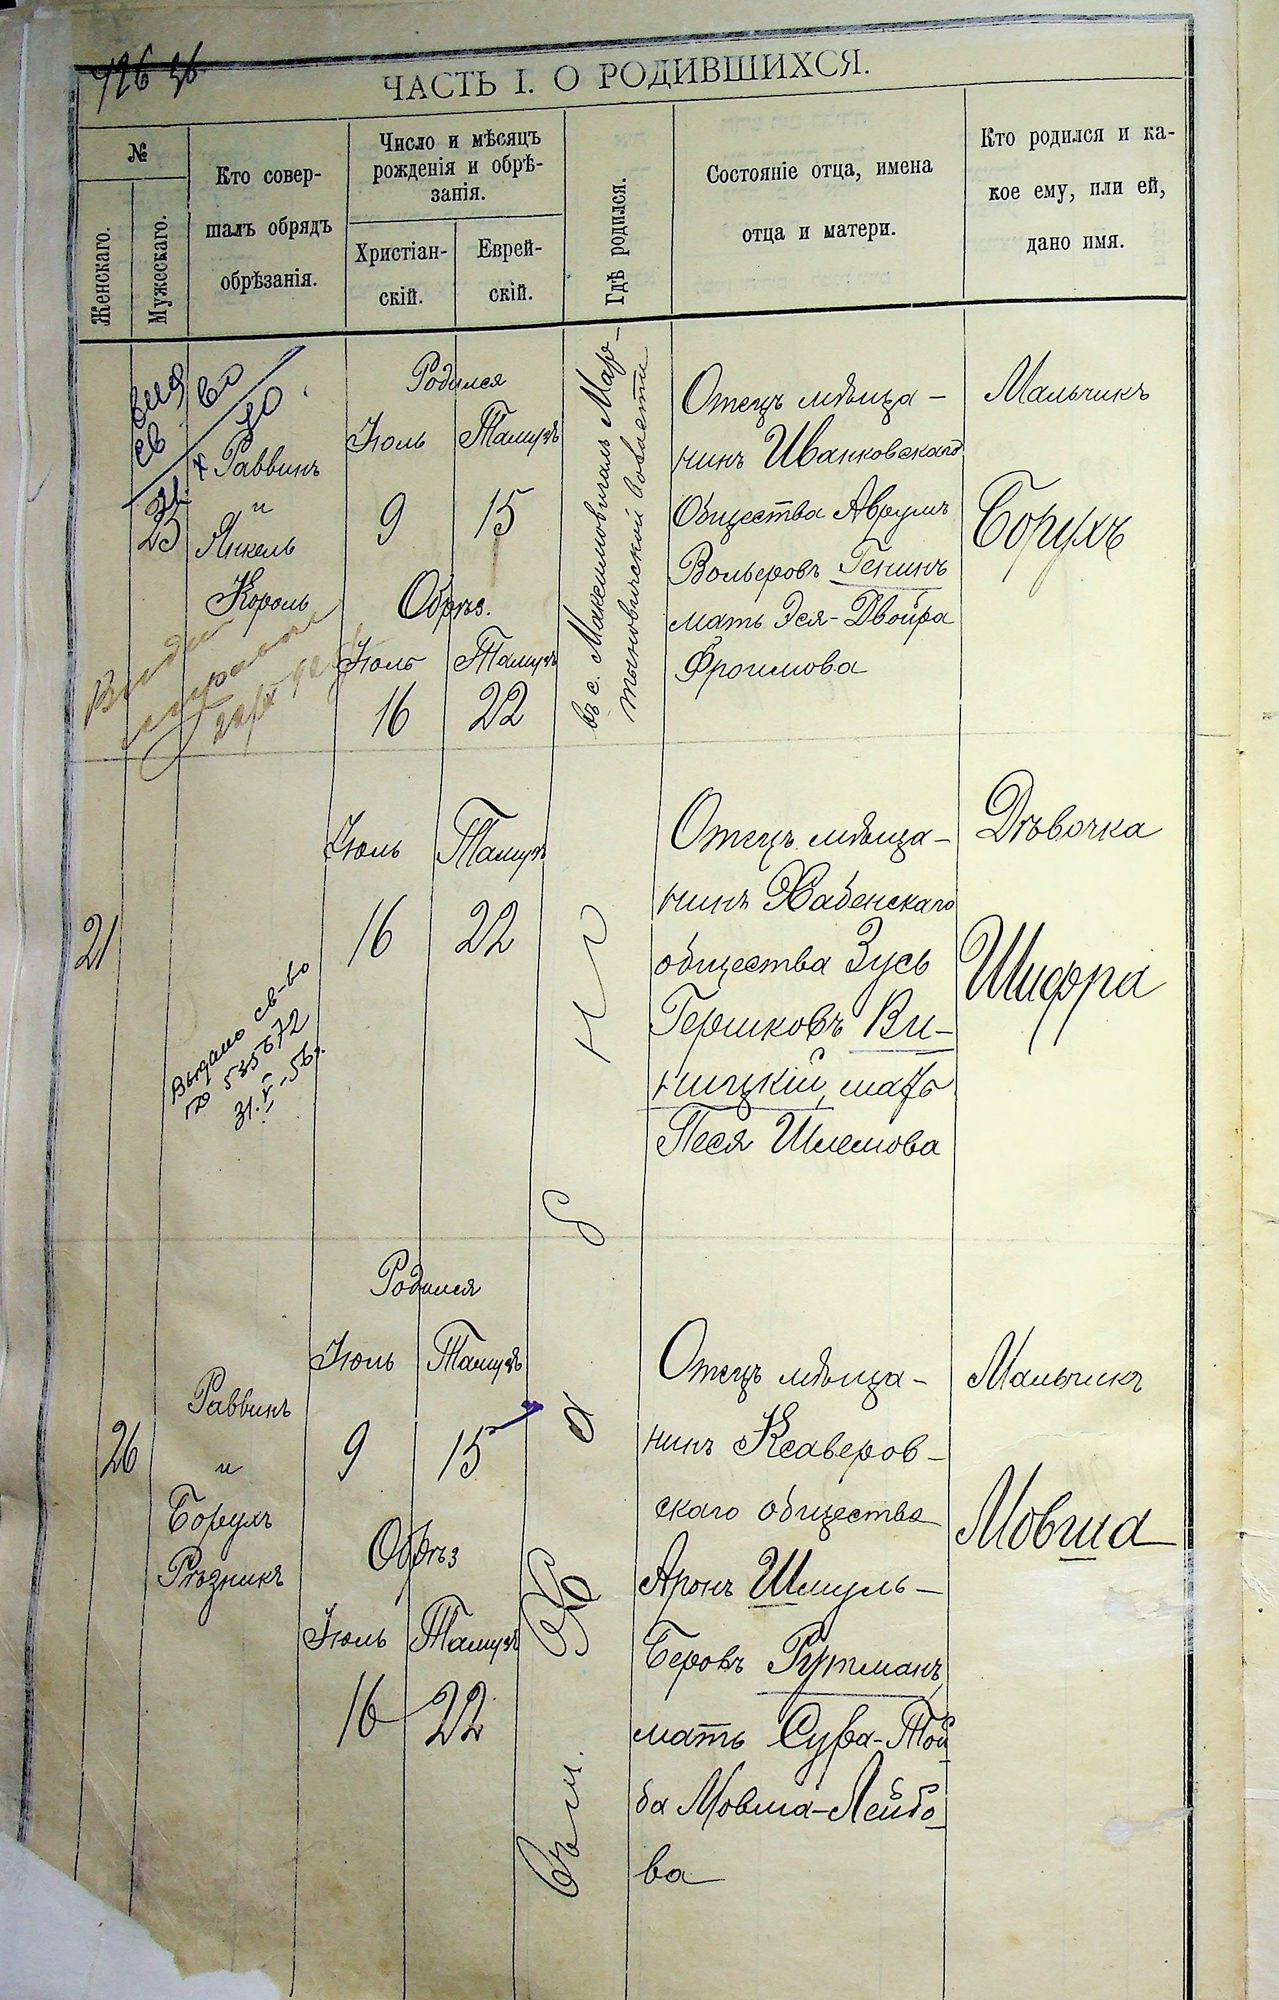 ЧАСТЬ I. О РОДИВШИХСЯ.
№
Женскаго.
Мужескаго.
Кто совер-
шалъ обрядъ
обрѣзанія.
Число и мѣсяцъ
рожденія и обрѣ-
занія.
Христіан-
скій.
Еврей-
скій.
Гдѣ родился.
Состояніе отца, имена
отца и матери.
Кто родился и ка-
кое ему, или ей,
дано имя.
25
Раввинъ
и
Янкель
Король
Родился
Іюль Тамузъ
9 15
Обрѣз.
Іюль Тамузъ
16 22
въ с. Максимовичахъ Мар-
тыновичской волости
Отецъ мѣща-
нинъ Иванковскаго
Общества Аврумъ
Вольеровъ Генинъ
мать Эся-Двойра
Фроимова
Мальчикъ
Борухъ
21
Выдано св-во
535672
31.V-56г.
Іюль Тамузъ
16 22
Отецъ мѣща-
нинъ Хабенскаго
общества Зусь
Гершковъ Ви-
ницкій, мать
Песя Шлемова
Дѣвочка
Шифра
26
Раввинъ
и
Борухъ
Рѣзникъ
Родился
Іюль Тамузъ
9 15
Обрѣз
Іюль Тамузъ
16 22
въ м. Хабное
Отецъ мѣща-
нинъ Ксаверов-
скаго общества
Аронъ Шмуль-
Беровъ Рутманъ,
мать Сура-Той
ба Мовша-Лейбо
ва
Мальчикъ
Мовша